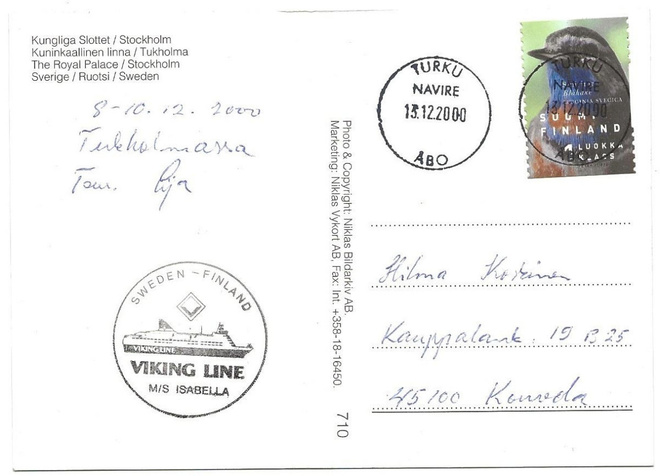 Kungliga Slottet / Stockholm
Kuninkaallinen linna / Tukholma
The Royal Palace / Stockholm
Sverige / Ruotsi / Sweden
8-10.12.2000
Tukholmassa
Pirja
SWEDEN - FINLAND
VIKING LINE
VIKING LINE
M/S ISABELLA
Photo & Copyright: Niklas Bildarkiv AB.
Marketing: Niklas Vykort AB. Fax: Int. +358-18-16450.
710
TURKU
NAVIRE
13.12.2000
ÅBO
TURKU
NAVIRE
Blåhake
SVECICA
13.12.2000
SUOMI
FINLAND
ÅBO
LUOKKA
KLASS
Hilma
19 B 25
45100 Kouvola